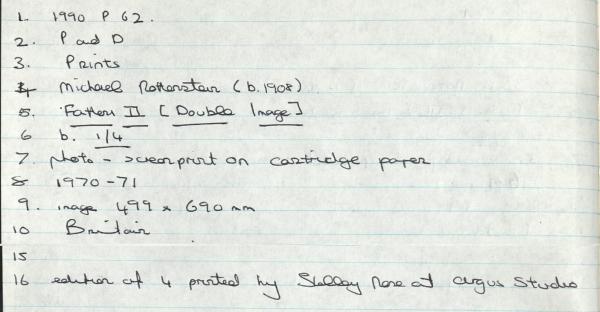 1. 1990 P 62.
2. P and D
3. Prints
4 Michael Rothenstein (b.1908)
5. Fathers II [Double Image]
6 b. 1/4
7. photo - screenprint on cartridge paper
8 1970-71
9. image 499 x 690 mm
10 Britain
15
16 edition of 4 printed by Shelley Rose at Argus Studio